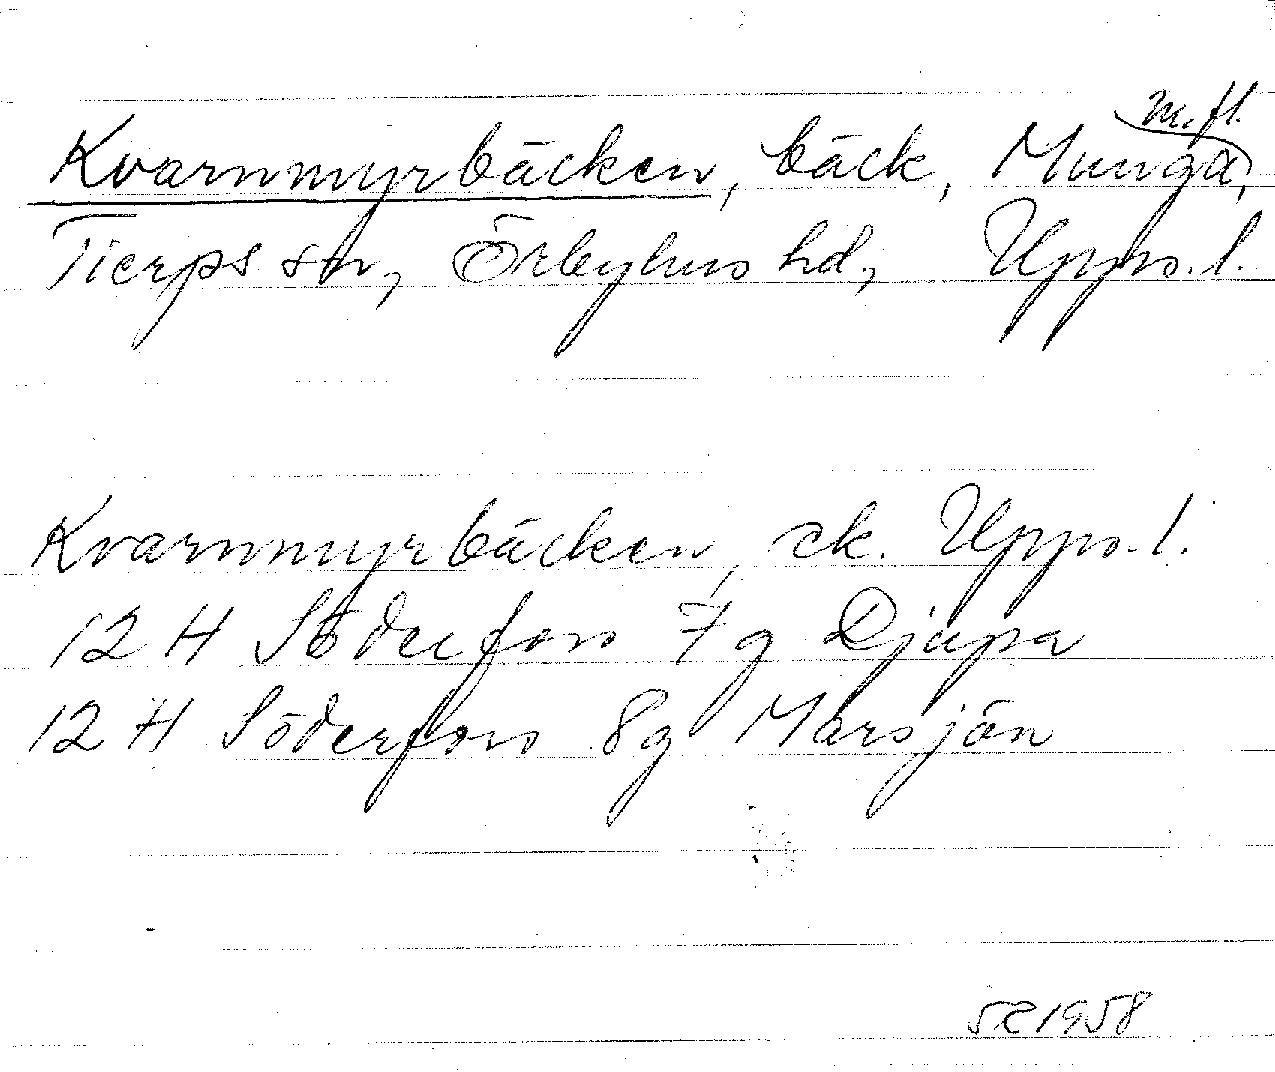 Kvarnmyrbäcken, bäck, Munga, m.fl.
Tierps sn, Örbyhus hd, Upps. l.
Kvarnmyrbäcken, ek. Upps. l.
12 H Söderfors 7g Djupa
12 H Söderfors 8g Marsjön
SR1958